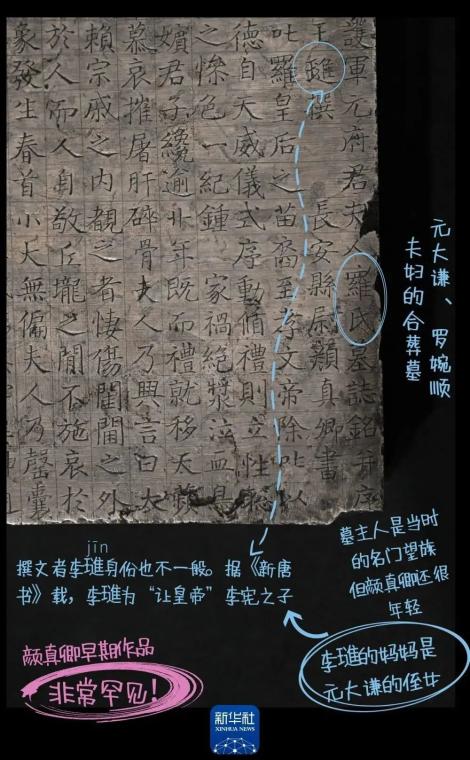 護軍元府君夫人羅氏墓誌銘并序
王璡撰 長安縣尉顏真卿書
叱羅皇后之苗裔至孝文帝除叱以
德自天威儀式序動循禮則立性聰
之慘色一紀鍾 家禍絕漿泣血具
嬪君子纔逾廿年既而禮就移天
慕哀摧屠肝碎骨夫人乃興言曰太
賴宗戚之內覩之者悽傷閭閻之外
於人而人自敬丘壠之間不施哀於
象發生春首小大無偏夫人乃罄囊
元大谦、罗婉顺
夫妇的合葬墓
jīn
撰文者李璡身份也不一般。据《新唐
书》载，李璡为“让皇帝”李宪之子
墓主人是当时
的名门望族
但颜真卿还很
年轻
李璡的妈妈是
元大谦的侄女
颜真卿早期作品
非常罕见！
新华社
XINHUA NEWS